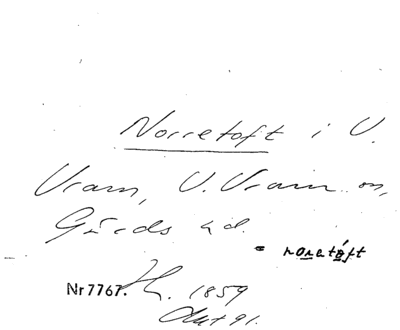 Norretoft i V.
Vram, V. Vram sn,
Gärds hd.
= noretoft
Nr 7767. 1859